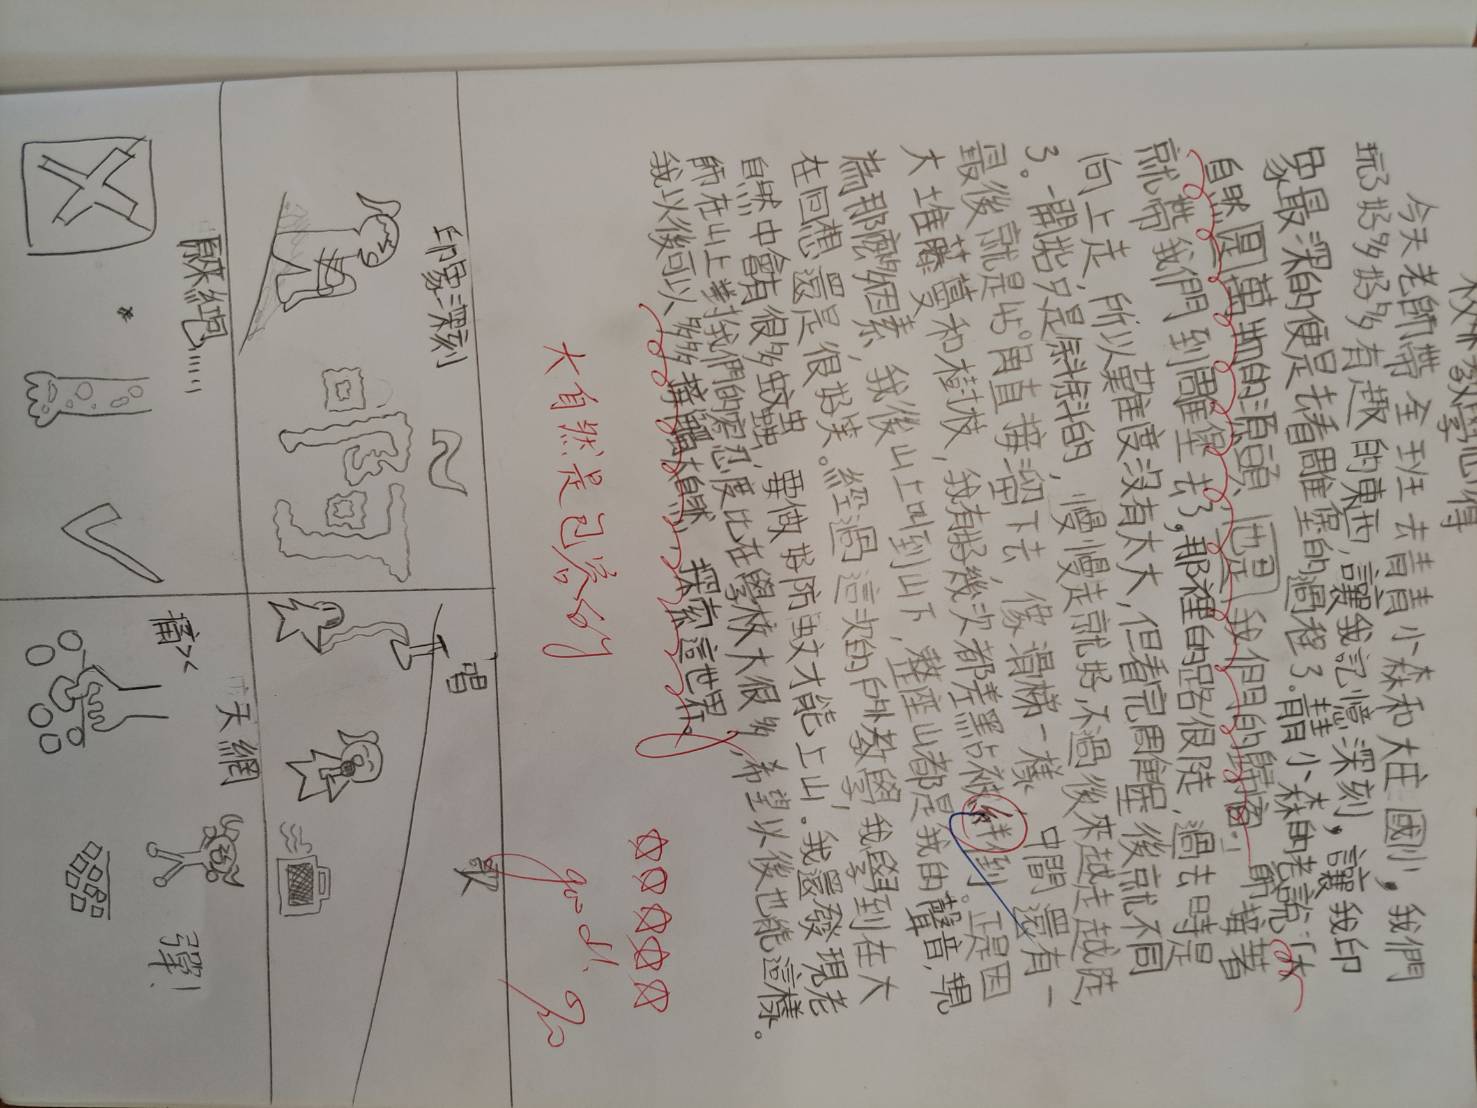 校外教學心得
今天老師帶全班去青青小森和大庄國小,我們
玩了好多好多有趣的東西,讓我記憶深刻,讓我印
象最深的便是去看雕堡的過程了。青小森的老師說:「大
自然是萬物的源頭,也是我們的歸宿。」前輩著
就帶我們到雕堡去了,那裡的路很陡,過去時是
向上走,所以難度沒有太大,但看完周雕堡後就不同
了。一開始只是斜斜的,慢慢走就好,不過後來越走越陡,
最後就是站。再直接溜下去,像滑梯一樣,中間還有一
大堆藤蔓和樹枝,我有好幾次都差點被絆倒。正是因
為那麼多因素,我從山上叫到山下,整座山都是我的聲音,現
在回想還是很好笑。經過這次的戶外教學,我學到在大
自然中會有很多蚊蟲,要做好防蚊才能上山。我還發現老
師在山上對我們的容忍度比在學校大很多,希望以後也能這樣。
我以後可以多多接觸大自然,探索這世界。
大自然是已給的
good! 90
印象深刻
唱
歌
原來如此……
痛><
天網
彈!